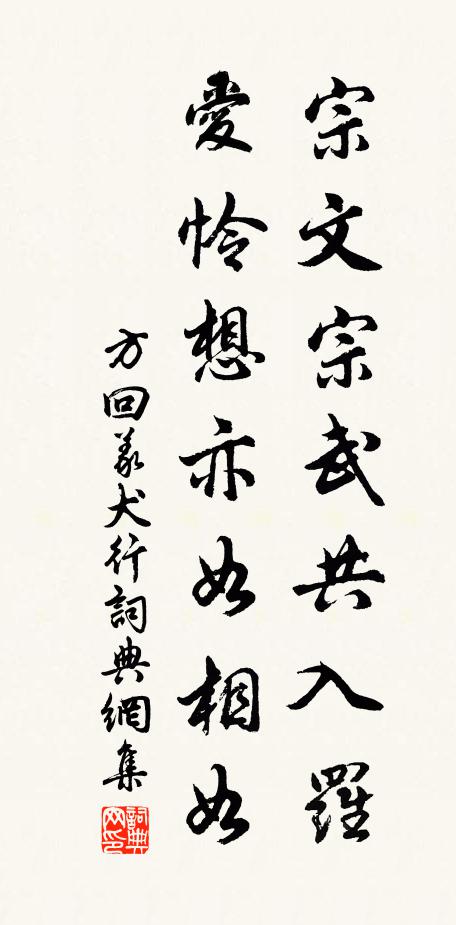 宗文宗武共入羅
愛憐想亦如相如
方回義犬行詞典網集
詞典网印